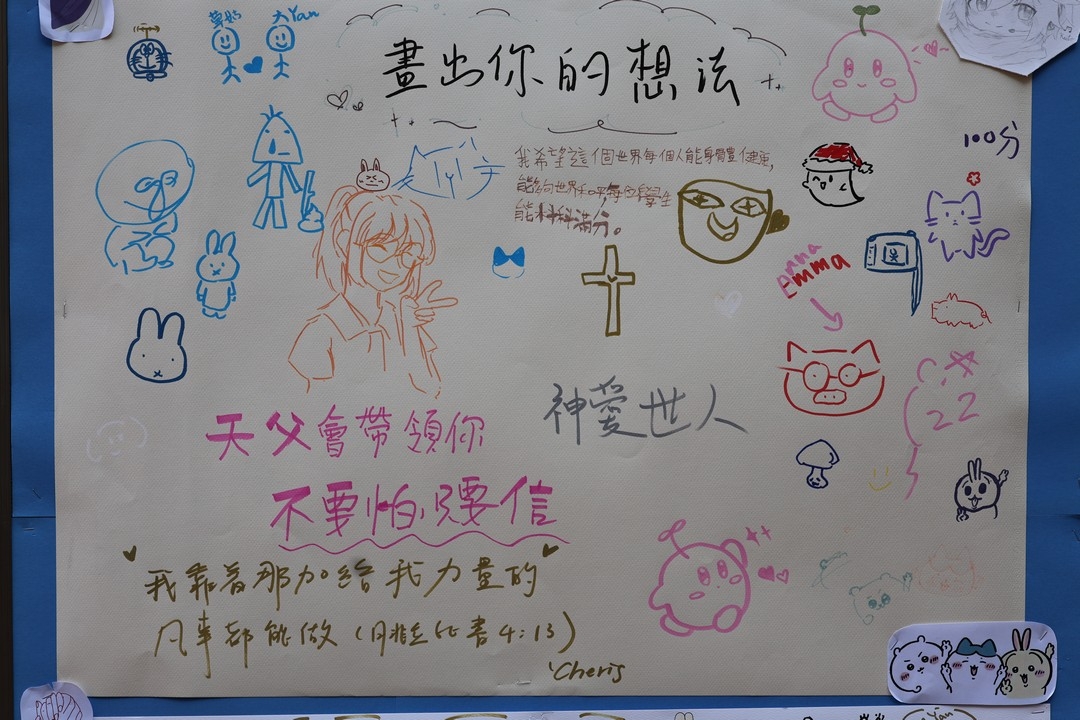 大Yan
畫出你的想法
100分
我希望這個世界每個人能身體健康,
能夠世界和平每個學生
能科科滿分。
Emma
Emma
22
神愛世人
天父會帶領你
不要怕只要信
我靠着那加給我力量的
凡事都能做(腓立比書4:13)
Cheris
Yan